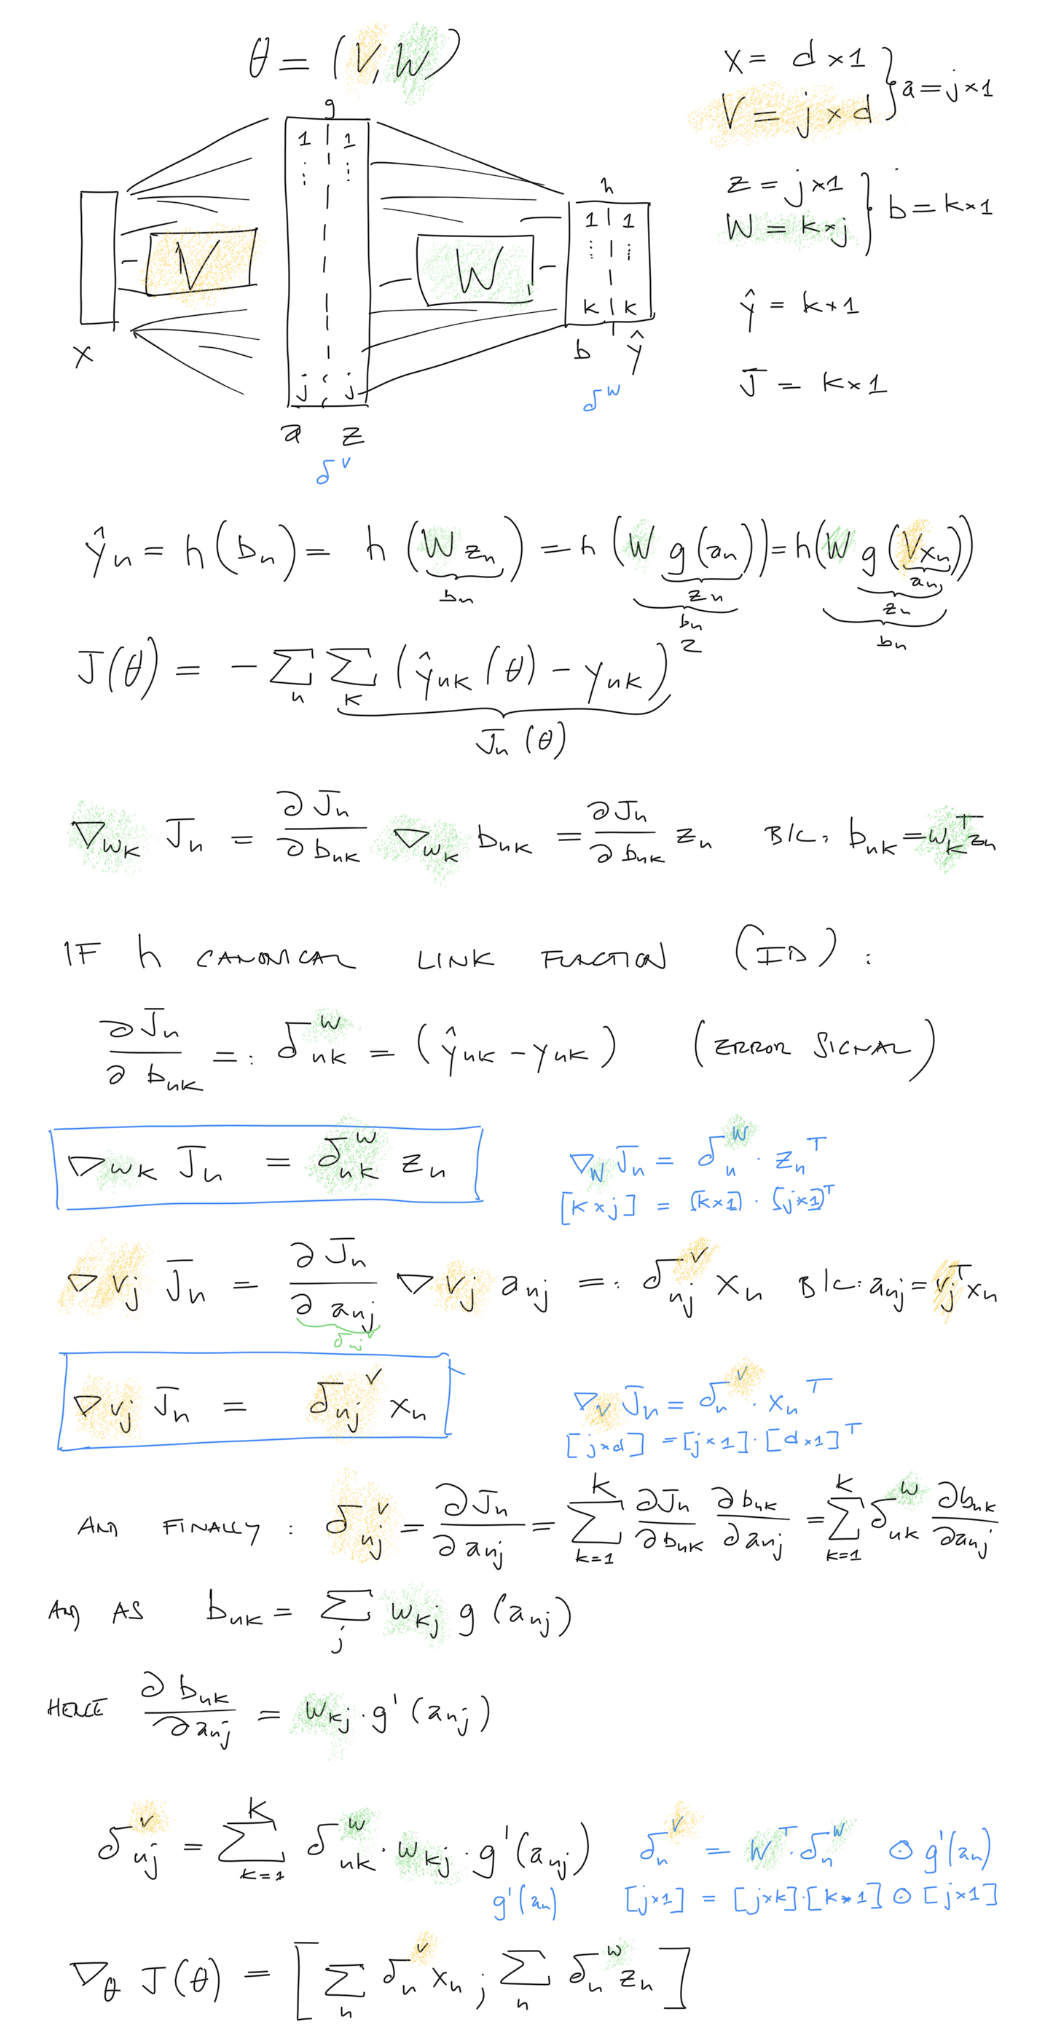 θ = (V, W)
x = d × 1
V = j × d } a = j × 1
z = j × 1
W = k × j } b = k × 1
ŷ = k × 1
J = k × 1
g
1 | 1
⋮ | ⋮
j | j
h
1 | 1
⋮ | ⋮
k | k
V
W
x
a z
b ŷ
δ^V
δ^W
ŷ_n = h(b_n) = h(W z_n) = h(W g(a_n)) = h(W g(V x_n))
b_n
z_n
b_n
a_n
z_n
b_n
J(θ) = - Σ_n Σ_k (ŷ_nk(θ) - y_nk)^2
J_n(θ)
∇_{w_k} J_n = ∂J_n/∂b_nk ∇_{w_k} b_nk = ∂J_n/∂b_nk z_n B/C: b_nk = w_k^T z_n
IF h CANONICAL LINK FUNCTION (ID):
∂J_n/∂b_nk =: δ^W_nk = (ŷ_nk - y_nk) (ERROR SIGNAL)
∇_{w_k} J_n = δ^W_nk z_n
∇_W J_n = δ^W_n · z_n^T
[k×j] = [k×1] · [j×1]^T
∇_{v_j} J_n = ∂J_n/∂a_nj ∇_{v_j} a_nj =: δ^V_nj x_n B/C: a_nj = v_j^T x_n
δ_nj
∇_{v_j} J_n = δ^V_nj x_n
∇_V J_n = δ^V_n · x_n^T
[j×d] = [j×1] · [d×1]^T
AND FINALLY: δ^V_nj = ∂J_n/∂a_nj = Σ_{k=1}^K ∂J_n/∂b_nk ∂b_nk/∂a_nj = Σ_{k=1}^K δ^W_nk ∂b_nk/∂a_nj
AND AS b_nk = Σ_j w_kj g(a_nj)
HENCE ∂b_nk/∂a_nj = w_kj · g'(a_nj)
δ^V_nj = Σ_{k=1}^K δ^W_nk · w_kj · g'(a_nj)
g'(a_n)
δ^V_n = W^T · δ^W_n ⊙ g'(a_n)
[j×1] = [j×k]·[k×1] ⊙ [j×1]
∇_θ J(θ) = [Σ_n δ^V_n x_n ; Σ_n δ^W_n z_n]